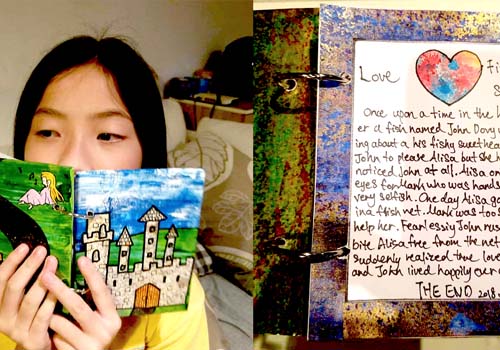 Love Fi
S
Once upon a time in the
er a fish named John Dory
ing about a his fishy sweethea
John to please Alisa but she
noticed John at all. Alisa on
eyes for Mark who was hands
very selfish. One day Alisa go
in a fish net. Mark was too
help her. Fearlessly John rus
bite Alisa free from the net
suddenly realized true love
and John lived happily ever
THE END 2018